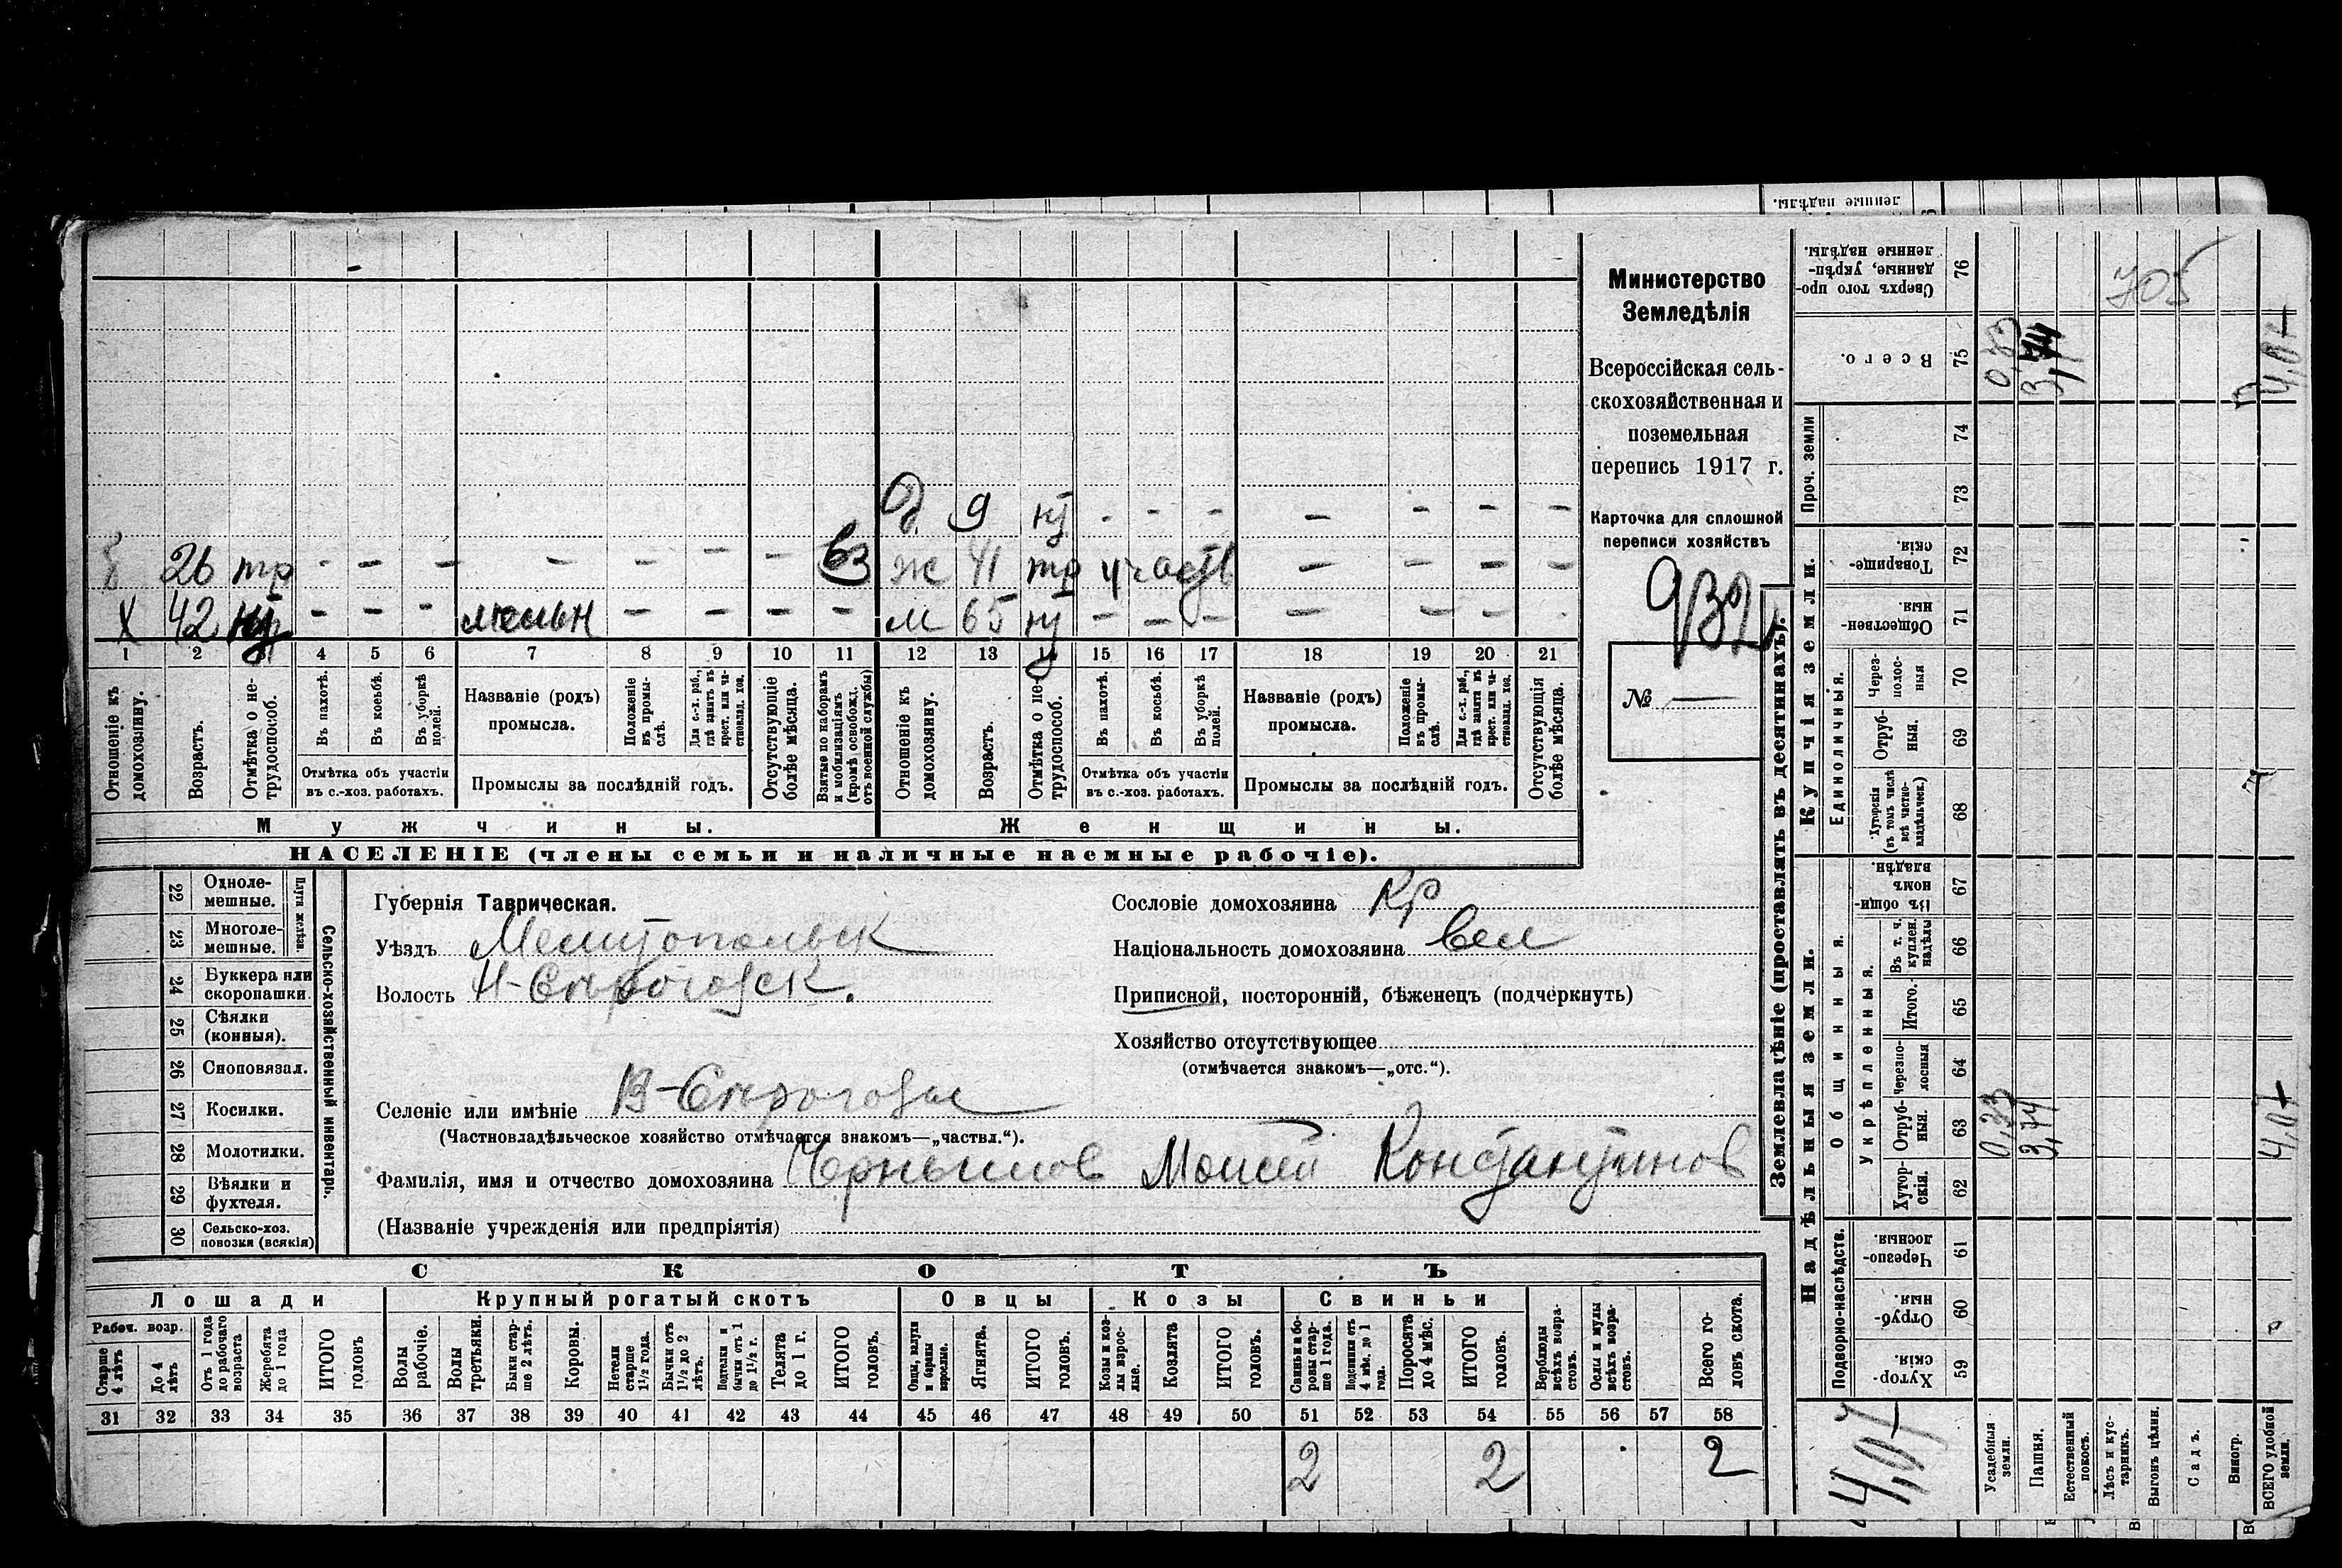 Министерство
Земледѣлія
Всероссійская сель-
скохозяйственная и
поземельная
перепись 1917 г.
Карточка для сплошной
переписи хозяйствъ
932
№ —
Д. 9 нт - - - - - - -
б 26 тр - - - - - - - вз ж 41 тр участв - - - -
х 42 нт - - - мельн - - - - м 65 нт - - - - - -
1 2 3 4 5 6 7 8 9 10 11 12 13 14 15 16 17 18 19 20 21
Отношеніе къ домохозяину.
Возрастъ.
Отмѣтка о не-трудоспособ.
Въ пахотѣ.
Въ косьбѣ.
Въ уборкѣ полей.
Отмѣтка объ участіи
въ с.-хоз. работахъ.
Названіе (родъ)
промысла.
Положеніе въ промы-слѣ.
Для с.-х. раб., гдѣ занятъ въ крест. или ча-стновлад. хоз.
Промыслы за послѣдній годъ.
Отсутствующіе болѣе мѣсяца.
Взятые по наборамъ и мобилизаціямъ (кромѣ освобожд. отъ военной службы)
Отношеніе къ домохозяину.
Возрастъ.
Отмѣтка о не-трудоспособ.
Въ пахотѣ.
Въ косьбѣ.
Въ уборкѣ полей.
Отмѣтка объ участіи
въ с.-хоз. работахъ.
Названіе (родъ)
промысла.
Положеніе въ промы-слѣ.
Для с.-х. раб., гдѣ занятъ въ крест. или ча-стновлад. хоз.
Промыслы за послѣдній годъ.
Отсутствующія болѣе мѣсяца.
Мужчины. Женщины.
НАСЕЛЕНІЕ (члены семьи и наличные наемные рабочіе).
Сельско-хозяйственный инвентарь.
Плуги желѣзн.
22 Одноле-мешные.
23 Многоле-мешные.
24 Буккера или скоропашки.
25 Сѣялки (конныя).
26 Сноповязал.
27 Косилки.
28 Молотилки.
29 Вѣялки и фухтеля.
30 Сельско-хоз. повозки (всякія)
Губернія Таврическая.
Уѣздъ Мелитопольск
Волость Н-Сѣрогозск.
Селеніе или имѣніе В-Сѣрогозы
(Частновладѣльческое хозяйство отмѣчается знакомъ—„частвл.“).
Фамилія, имя и отчество домохозяина Чернышов Моисей Константинов
(Названіе учрежденія или предпріятія)
Сословіе домохозяина Кр
Національность домохозяина вел
Приписной, посторонній, бѣженецъ (подчеркнуть)
Хозяйство отсутствующее
(отмѣчается знакомъ—„отс.“).
СКОТЪ
Лошади Крупный рогатый скотъ Овцы Козы Свиньи
Рабоч. возр.
Старше 4 лѣтъ
До 4 лѣтъ
Отъ 1 года до рабочаго возраста
Жеребята до 1 года
ИТОГО головъ
Волы рабочіе.
Волы третьяки.
Быки стар-ше 2 лѣтъ.
Коровы.
Нетели старше 1½ года.
Бычки отъ 1½ до 2 лѣтъ.
Подтелки и бычки отъ 1 до 1½ г.
Телята до 1 г.
ИТОГО головъ.
Овцы, валухи и бараны взрослые.
Ягнята.
ИТОГО головъ.
Козы и коз-лы взрос-лые.
Козлята
ИТОГО головъ.
Свиньи и бо-ровы стар-ше 1 года.
Подсвинки отъ 4 мѣс. до 1 года.
Поросята до 4 мѣс.
ИТОГО головъ.
Верблюды всѣхъ возра-стовъ.
Ослы и мулы всѣхъ возра-стовъ.
Всего го-ловъ скота.
31 32 33 34 35 36 37 38 39 40 41 42 43 44 45 46 47 48 49 50 51 52 53 54 55 56 57 58
2 2 2
Землевладѣніе (проставлять въ десятинахъ).
Надѣльныя земли. Купчія земли. Проч. земли
Подворно-наслѣдств.
Общинныя.
Укрѣпленныя.
Единоличныя.
59 Хутор-скія.
60 Отруб-ныя.
61 Черезпо-лосныя.
62 Хутор-скія.
63 Отруб-ныя.
64 Черезпо-лосныя
65 Итого.
66 Въ т. ч. куплен. надѣлы
67 Въ общи-номъ владѣн.
68 Хуторскія (въ томъ числѣ всѣ частно-владѣльческ.)
69 Отруб-ныя.
70 Через-полос-ныя
71 Обществен-ныя.
72 Товарище-скія.
73
74
75 Всего.
76 Сверхъ того про-данные, укрѣп-ленные надѣлы.
Усадебныя земли.
Пашня.
Естественный покосъ.
Лѣсъ и кус-тарникъ.
Выгонъ цѣлин.
Садъ.
Виногр.
ВСЕГО удобной земли.
0,33
3,74
4,07
4,07
705
ленные надѣлы.